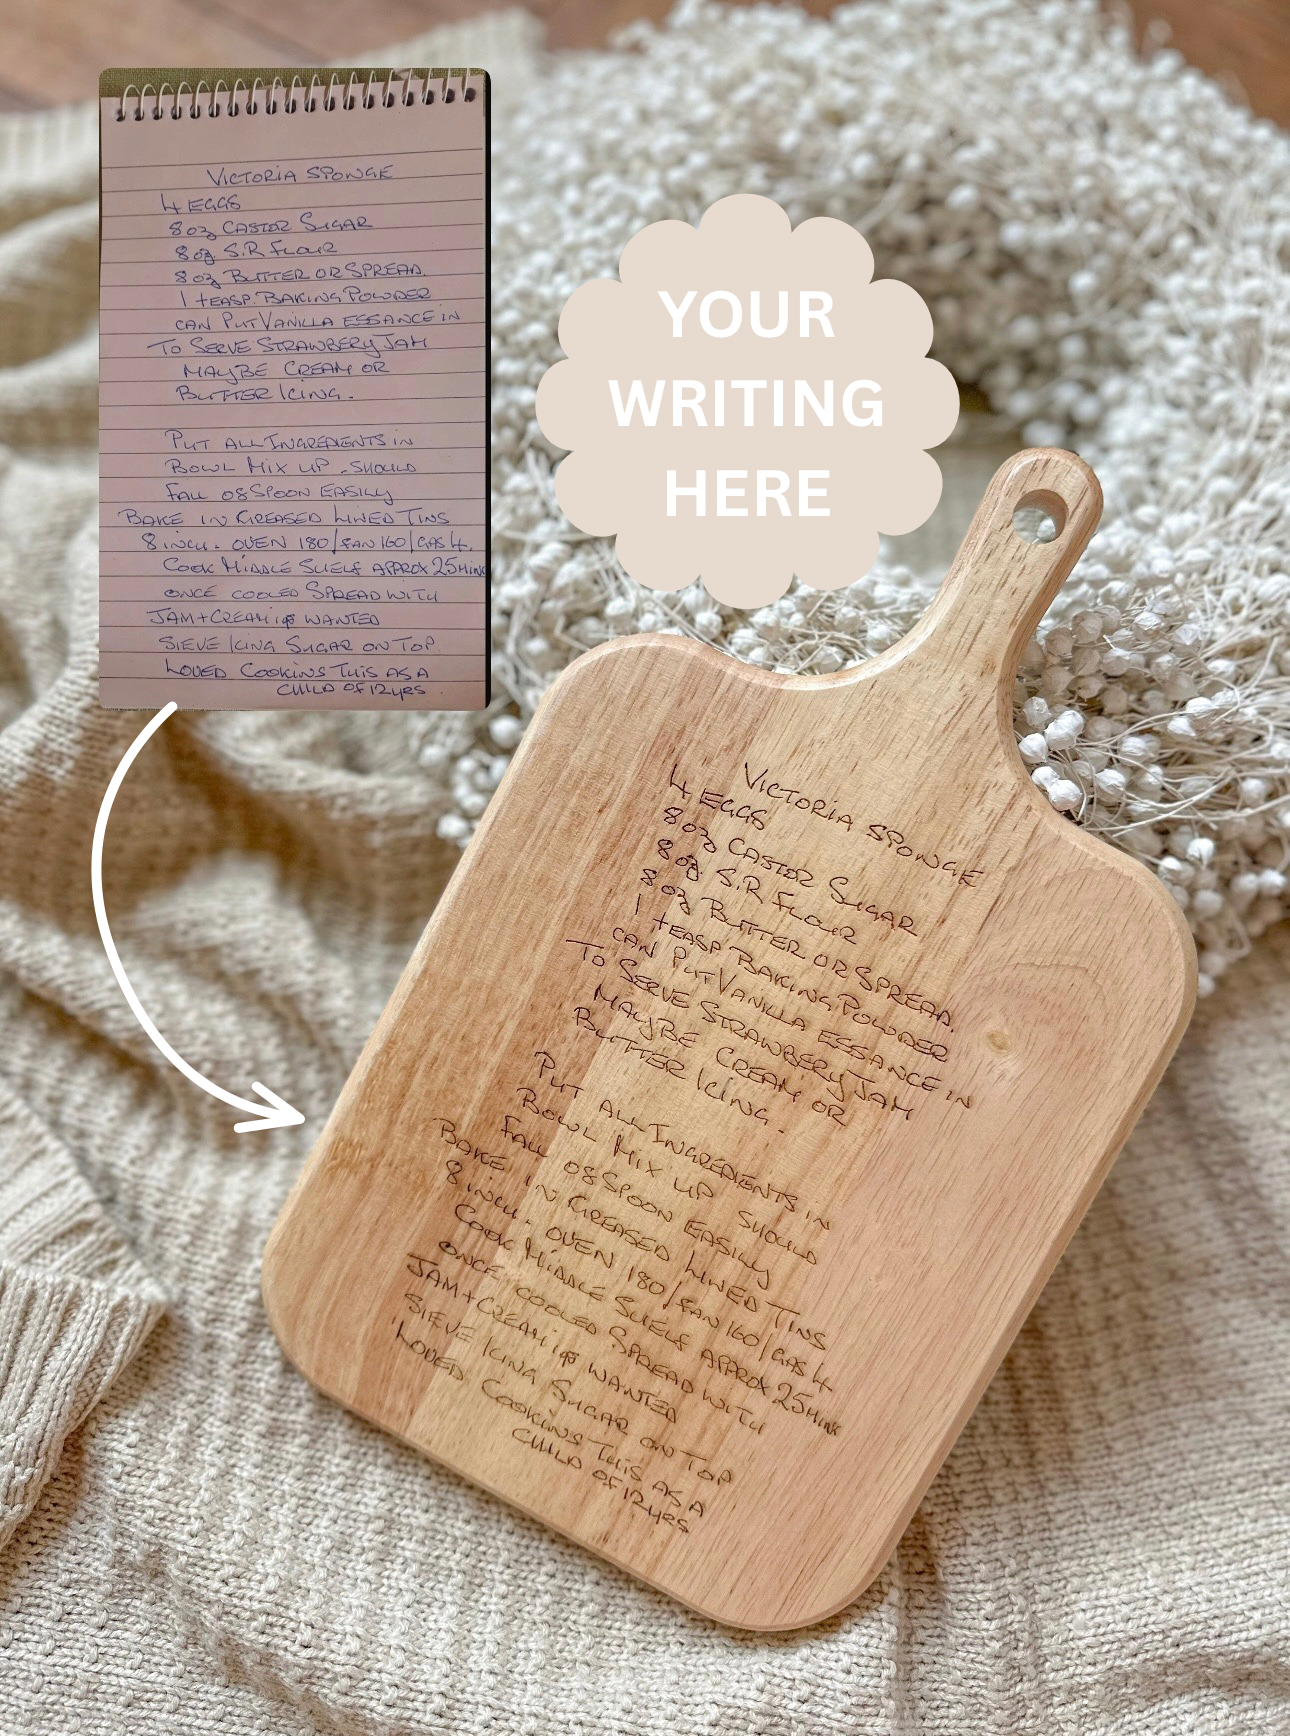 VICTORIA SPONGE
4 EGGS
8oz CASTOR SUGAR
8oz S.R FLOUR
8oz BUTTER OR SPREAD.
1 tEASP. BAKING POWDER
CAN PUT VANILLA ESSANCE IN
TO SERVE STRAWBERY JAM
MAYBE CREAM OR
BUTTER ICING.
PUT ALL INGREDIENTS IN
BOWL MIX UP - SHOULD
FALL OF SPOON EASILY
BAKE IN GREASED LINED TINS
8 INCH. OVEN 180/FAN 160/GAS 4.
COOK MIDDLE SHELF APPROX 25MINS
ONCE COOLED SPREAD WITH
JAM + CREAM IF WANTED
SIEVE ICING SUGAR ON TOP
LOVED COOKING THIS AS A
CHILD OF 12 YRS.
YOUR
WRITING
HERE
VICTORIA SPONGE
4 EGGS
8oz CASTOR SUGAR
8oz. S.R FLOUR
8oz BUTTER OR SPREAD.
1 tEASP BAKING POWDER
CAN PUT VANILLA ESSANCE IN
TO SERVE STRAWBERY JAM
MAYBE CREAM OR
BUTTER ICING.
PUT ALL INGREDIENTS IN
BOWL MIX UP SHOULD
FALL OF SPOON EASILY
BAKE IN GREASED LINED TINS
8 INCH. OVEN 180/FAN 160/GAS 4
COOK MIDDLE SHELF APPROX 25MINS
ONCE COOLED SPREAD WITH
JAM + CREAM IF WANTED
SIEVE ICING SUGAR ON TOP
LOVED COOKING THIS AS A
CHILD OF 12 YRS